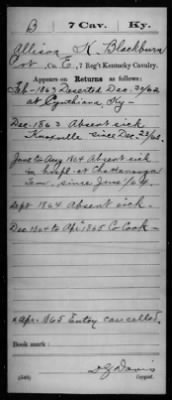 B 7 Cav. Ky.
Allison K. Blackburn
Pvt, Co. E, 7 Reg't Kentucky Cavalry.
Appears on Returns as follows:
Feb - 1863 Deserted Dec. 20/62
at Cynthiana, Ky -
Dec. 1863 Absent sick
Knoxville since Dec. 23/63.
June to Aug 1864 Absent sick
in hospl. at Chattanooga
Tenn. since June 1/64.
Sept 1864 Absent sick.
Dec 1864 to Apr 1865 Co Cook -
x Apr. 1865 Entry cancelled.
Book mark:
(546)
Copyist.